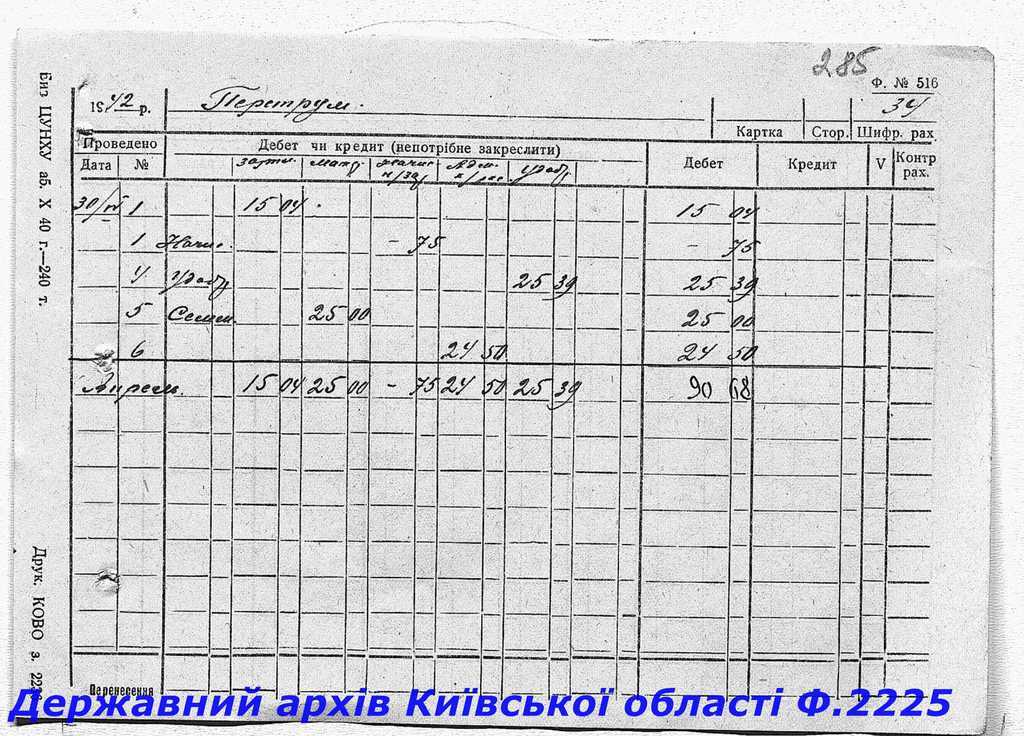 285
Ф. № 516
1942 р. Петрум. 34
Картка Стор. Шифр. рах
Проведено Дебет чи кредит (непотрібне закреслити) Дебет Кредит V Контр рах.
Дата №
30/IV 1 15 04 15 04
1 Начис. - 75 - 75
4 удобр 25 39 25 39
5 Семен. 25 00 25 00
6 24 50 24 50
Апрель. 15 04 25 00 - 75 24 50 25 39 90 68
Перенесення
Биз ЦУНХУ аб. X 40 г.—240 т.
Друк. КОВО з. 22
Державний архів Київської області Ф.2225